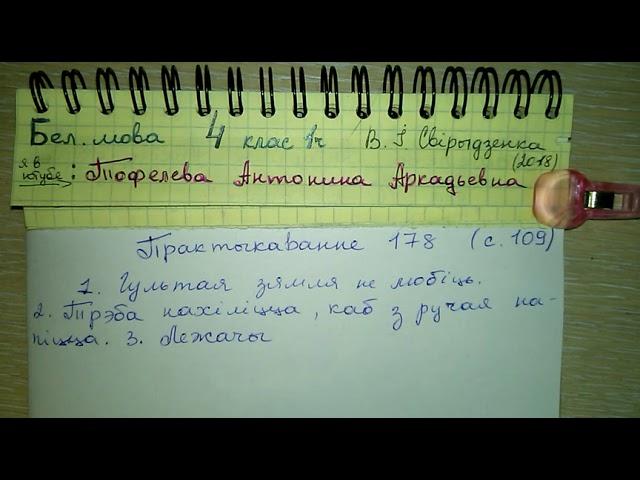 Бел. мова 4 клас 1ч В. І Свірыдзенка
(2018)
я в ютубе: Тофелева Антонина Аркадьевна
Практыкаванне 178 (с. 109)
1. Гультая зямля не любіць.
2. Трэба нахіліцца, каб з ручая на-
піцца. 3. Лежачы